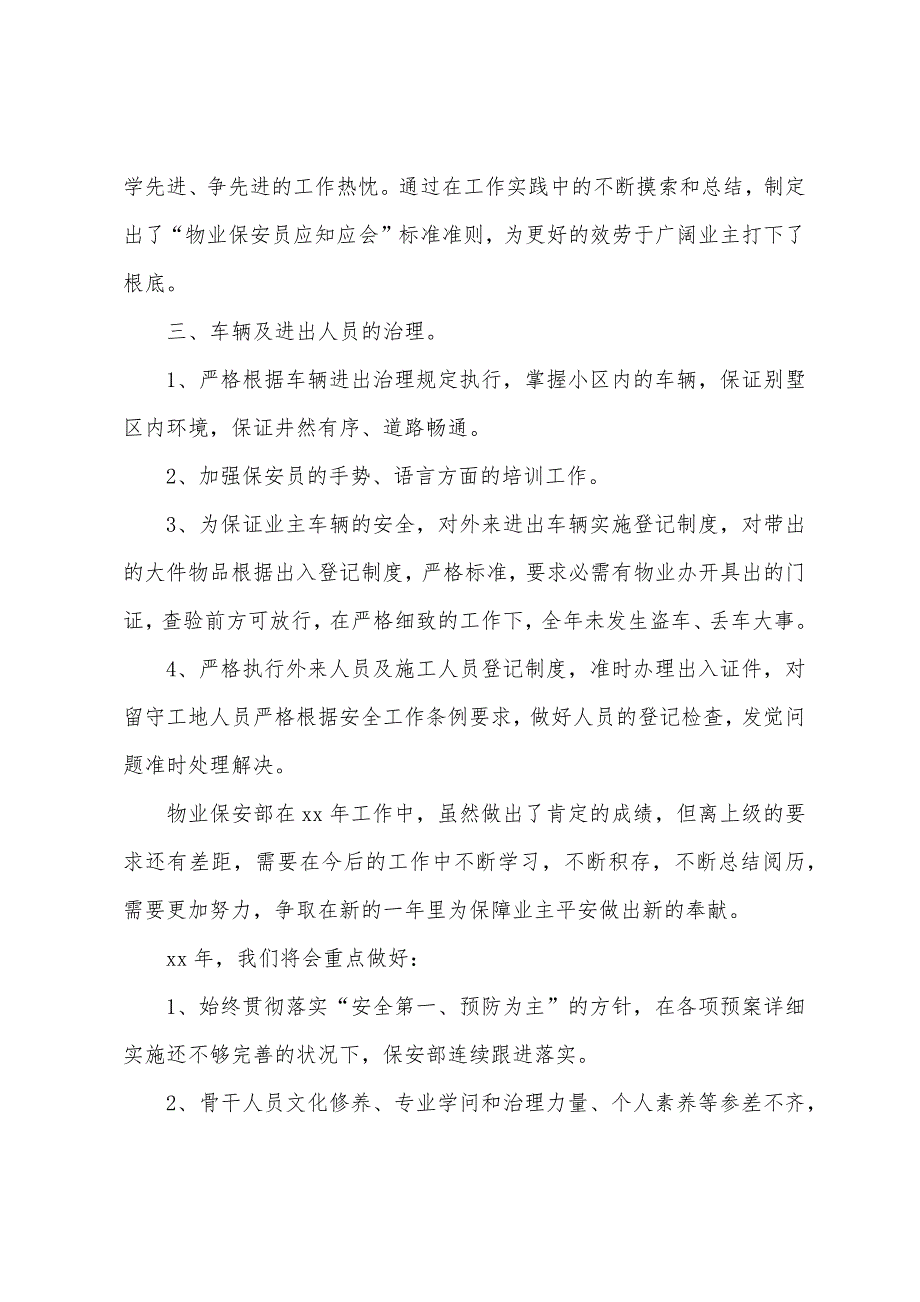 学先进、争先进的工作热忱。通过在工作实践中的不断摸索和总结，制定
出了“物业保安员应知应会”标准准则，为更好的效劳于广阔业主打下了
根底。
三、车辆及进出人员的治理。
1、严格根据车辆进出治理规定执行，掌握小区内的车辆，保证别墅
区内环境，保证井然有序、道路畅通。
2、加强保安员的手势、语言方面的培训工作。
3、为保证业主车辆的安全，对外来进出车辆实施登记制度，对带出
的大件物品根据出入登记制度，严格标准，要求必需有物业办开具出的门
证，查验前方可放行，在严格细致的工作下，全年未发生盗车、丢车大事。
4、严格执行外来人员及施工人员登记制度，准时办理出入证件，对
留守工地人员严格根据安全工作条例要求，做好人员的登记检查，发觉问
题准时处理解决。
物业保安部在 xx 年工作中，虽然做出了肯定的成绩，但离上级的要
求还有差距，需要在今后的工作中不断学习，不断积存，不断总结阅历，
需要更加努力，争取在新的一年里为保障业主平安做出新的奉献。
xx 年，我们将会重点做好：
1、始终贯彻落实“安全第一、预防为主”的方针，在各项预案详细
实施还不够完善的状况下，保安部连续跟进落实。
2、骨干人员文化修养、专业学问和治理力量、个人素养等参差不齐，